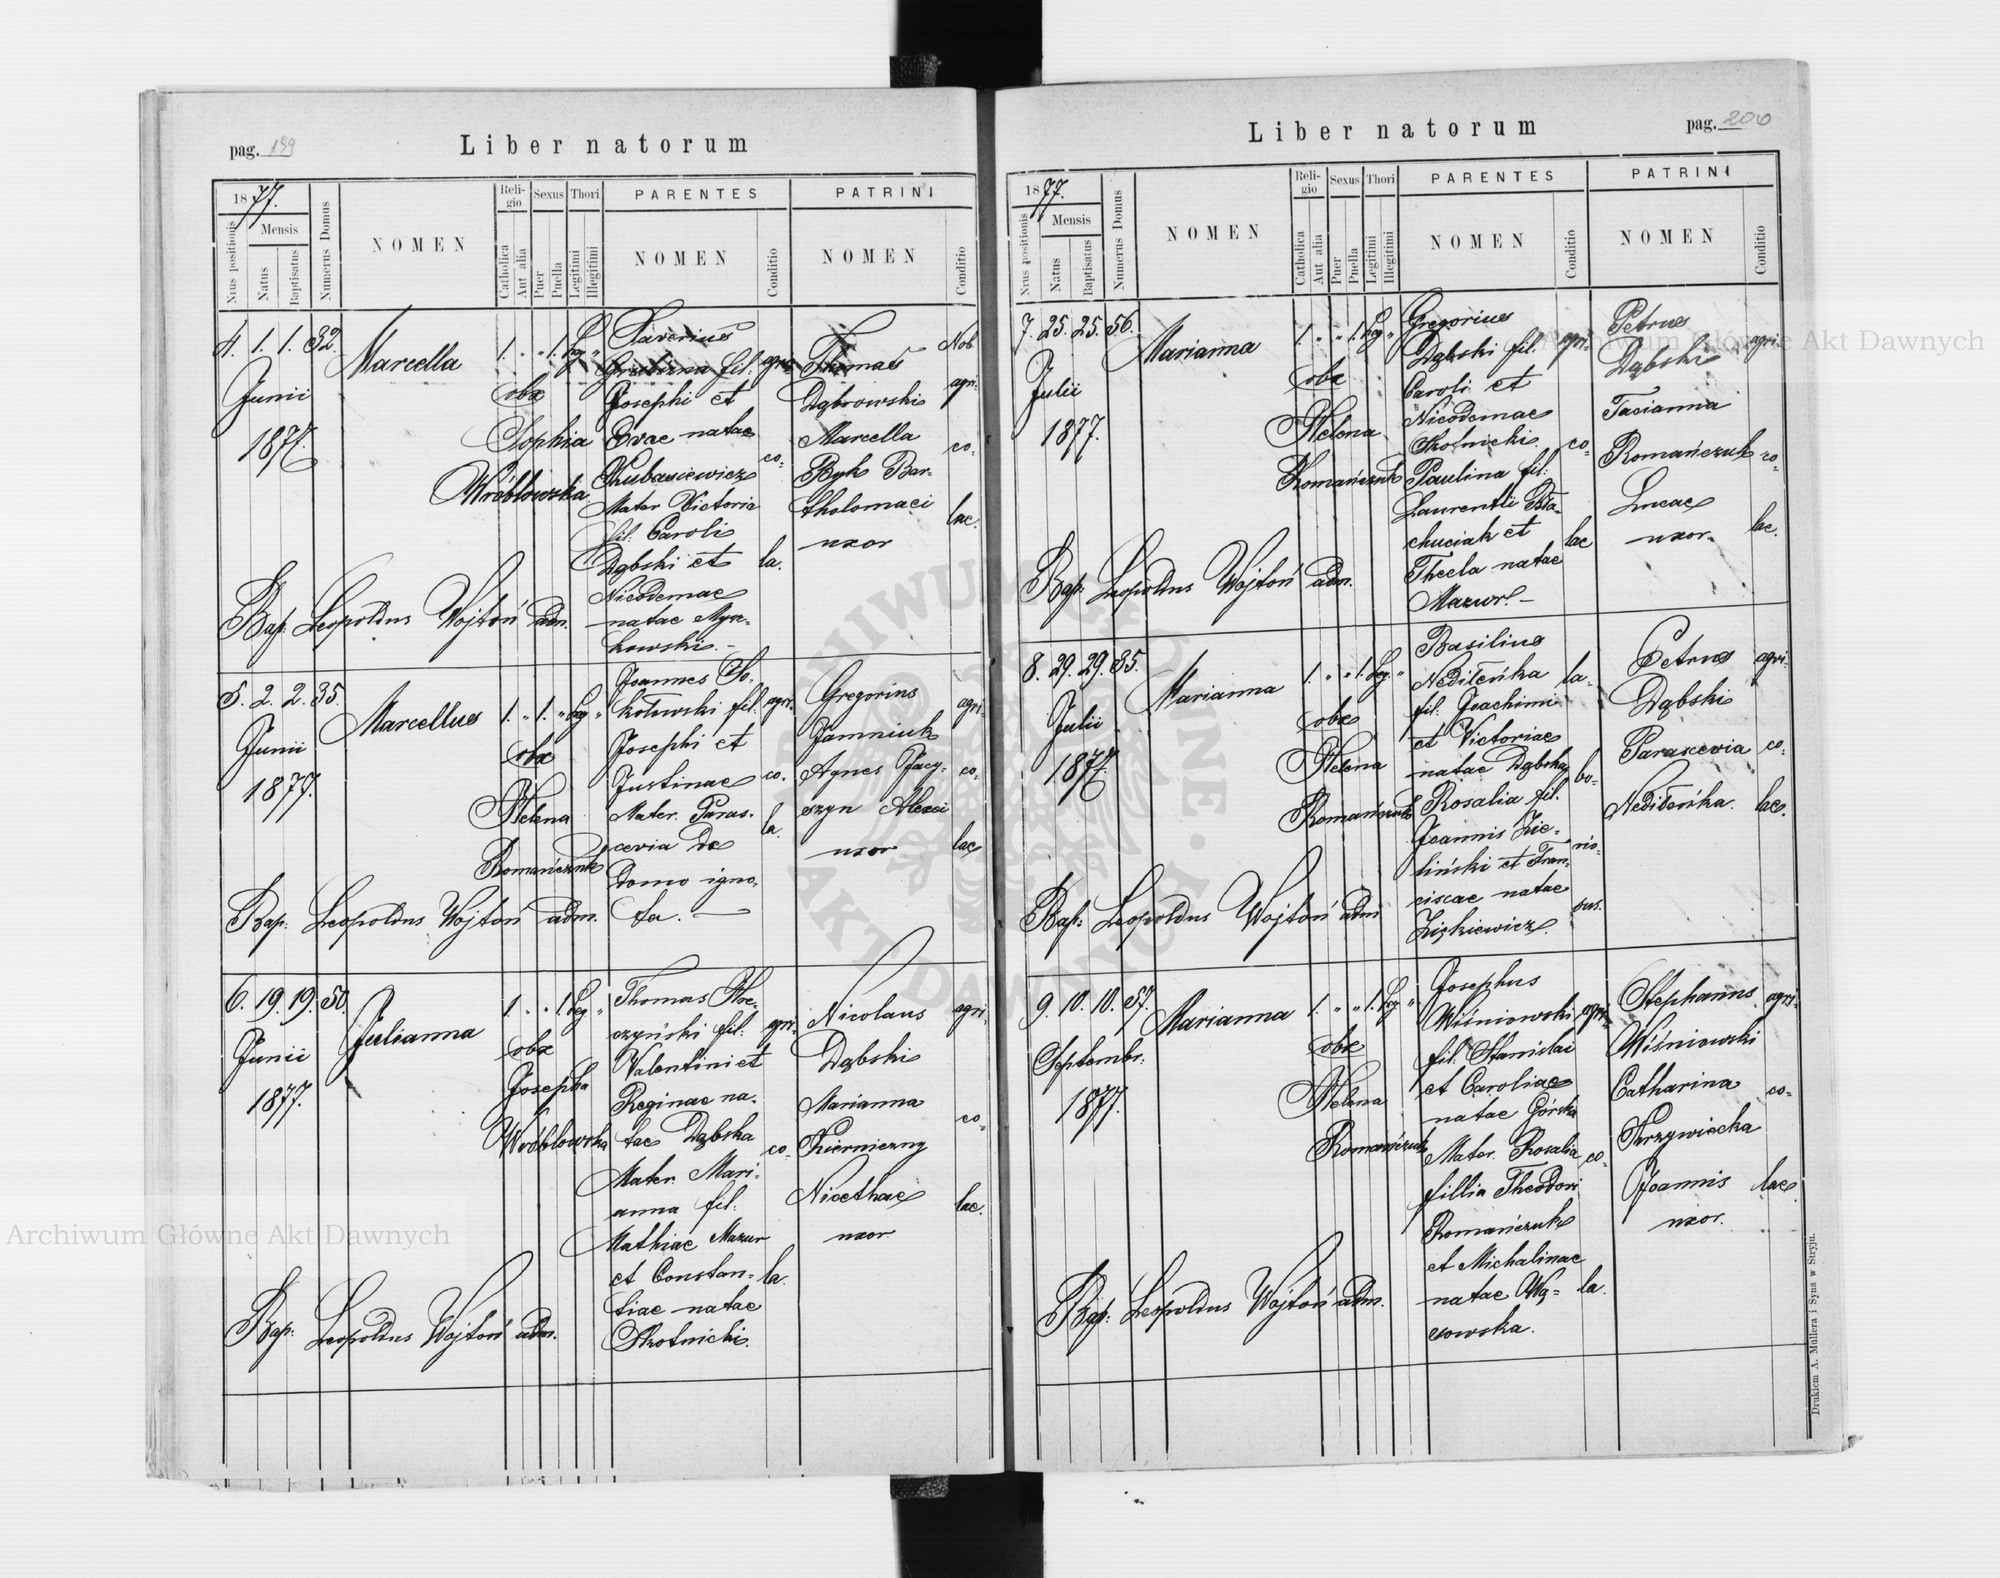 pag. 199
Liber natorum
1877.
Nrus positionis
Mensis
Natus
Baptisatus
Numerus Domus
NOMEN
Religio
Catholica
Aut alia
Sexus
Puer
Puella
Thori
Legitimi
Illegitimi
PARENTES
NOMEN
Conditio
PATRINI
NOMEN
Conditio
4. 1. 1. 32.
Junii
1877.
Marcella
1. " " 1. leg "
obx
Sophia
Wróblowska
Xaverius
fil:
Josephi et
Evae natae
Kubasiewicz
Mater Victoria
fil: Caroli
Dąbski et
Nicodemae
natae Mysz-
kowski. -
agri-
co-
la.
Thomas
Dąbrowski
Marcella
Byk Bar-
tholomaei
uxor
Nob
agri-
co-
lae.
Bap: Leopoldus Wojtoń adm.
5. 2. 2. 35.
Junii
1877.
Marcellus
1. " 1. " leg "
obx
Helena
Romańczuk
Joannes So-
kołowski fil:
Josephi et
Justinae
Mater. Paras-
cevia De
Domo igno-
ta. —
agri-
co-
la.
Gregorius
Jamniuk
Agnes Jacy-
szyn Alexei
uxor
agri-
co-
lae
Bap: Leopoldus Wojtoń adm.
6. 19. 19. 50.
Junii
1877.
Julianna
1. " " 1. leg "
obx
Josepha
Wróblowska
Thomas
fil:
Valentini et
Reginae na-
tae Dąbska
Mater. Mari-
anna fil:
Mathiae Mazur
et Constan-
tiae natae
Skotnicki.
agri-
co-
la.
Nicolaus
Dąbski
Marianna
Kierniczny
Nicethae
uxor
agri-
co-
lae.
Bap: Leopoldus Wojtoń adm.
pag. 200
Liber natorum
1877.
Nrus positionis
Mensis
Natus
Baptisatus
Numerus Domus
NOMEN
Religio
Catholica
Aut alia
Sexus
Puer
Puella
Thori
Legitimi
Illegitimi
PARENTES
NOMEN
Conditio
PATRINI
NOMEN
Conditio
7. 25. 25. 56.
Julii
1877.
Marianna
1. " " 1. leg "
obx
Helena
Romańczuk
Gregorius
Dąbski fil:
Caroli et
Nicodemae
Skotnicki.
Paulina fil:
Laurentii
et
Thecla natae
Mazur. -
agri-
co-
lae
Petrus
Dąbski
Tacianna
Romańczuk
Lucae
uxor.
agri-
co-
lae.
Bap: Leopoldus Wojtoń adm.
8. 29. 29. 35.
Julii
1877.
Marianna
1. " " 1. leg. "
obx
Helena
Romańczuk
Basilius
Nedileńka
fil: Joachimi
et Victoriae
natae Dąbska
Rosalia fil.
Joannis Zie-
liński et Fran-
ciscae natae
Ziękiewicz.
la-
bo-
rio-
sus.
Petrus
Dąbski
Parascevia
Nedileńka.
agri-
co-
lae.
Bap: Leopoldus Wojtoń adm
9. 10. 10. 57.
Septembr.
1877.
Marianna
1. " " 1. leg "
obx
Helena
Romańczuk
Josephus
Wiśniowski
fil: Stanislai
et Caroliae
natae Górska
Mater. Rosalia
fillia Theodori
Romańczuk
et Michalinae
natae Wą-
sowska.
agri-
co-
la.
Stephanus
Wiśniowski
Catharina
Krzywiecka
Joannis
uxor.
agri-
co-
lae.
Bap: Leopoldus Wojtoń adm.
Drukiem A. Müllera i Syna w Stryju.
Archiwum Główne Akt Dawnych
Archiwum Główne Akt Dawnych
ARCHIWUM GŁÓWNE · AKT DAWNYCH ·